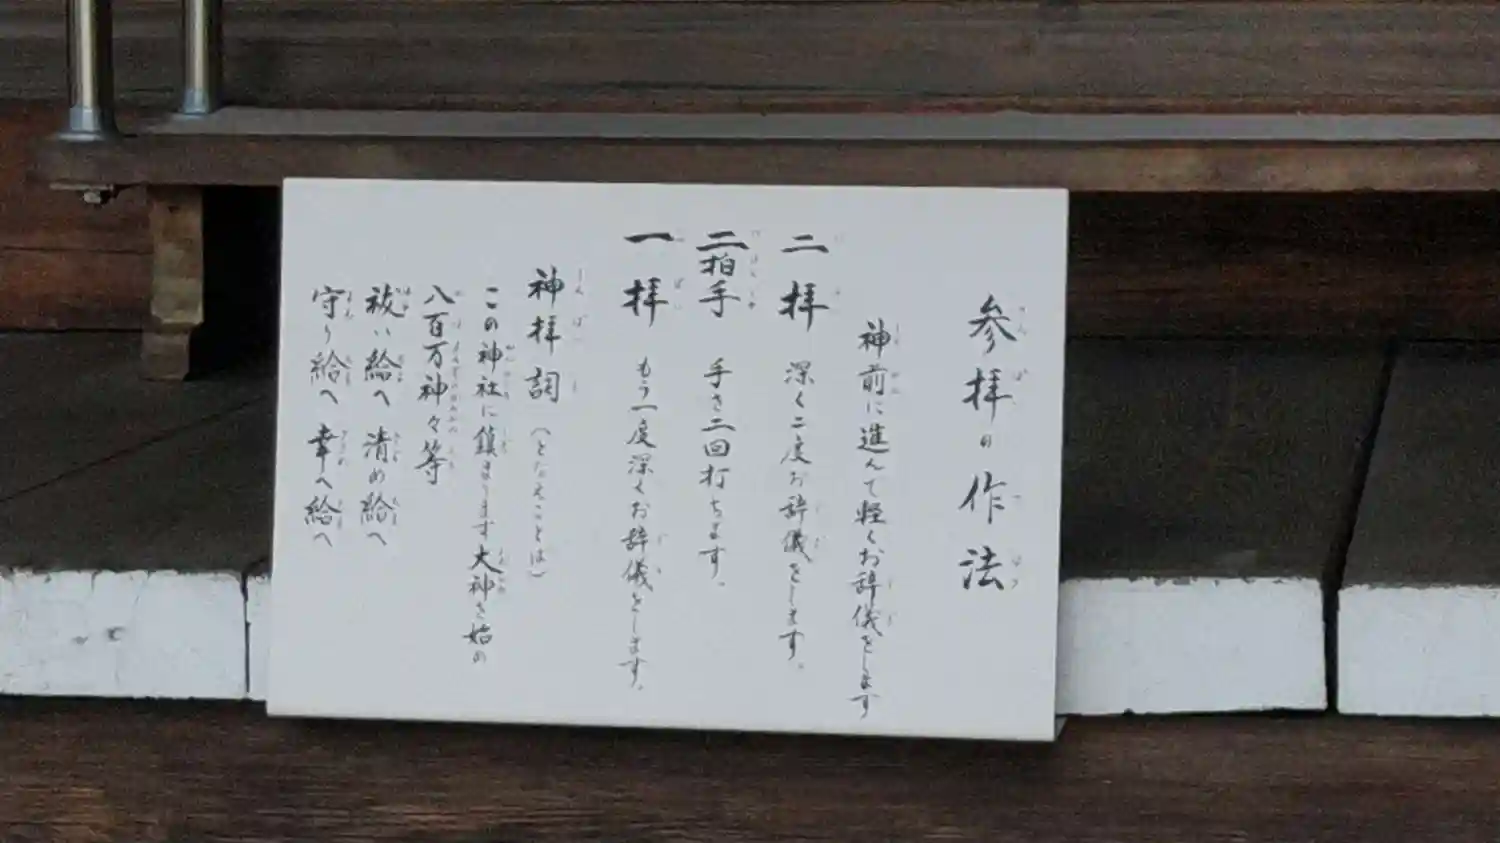 参拝の作法
神前に進んで軽くお辞儀をします
二拝 深く二度お辞儀をします。
二拍手 手を二回打ちます。
一拝 もう一度深くお辞儀をします。
神拝詞（となえことば）
この神社に鎮まります大神を始め
八百万神々等
祓い給へ 清め給へ
守り給へ 幸へ給へ